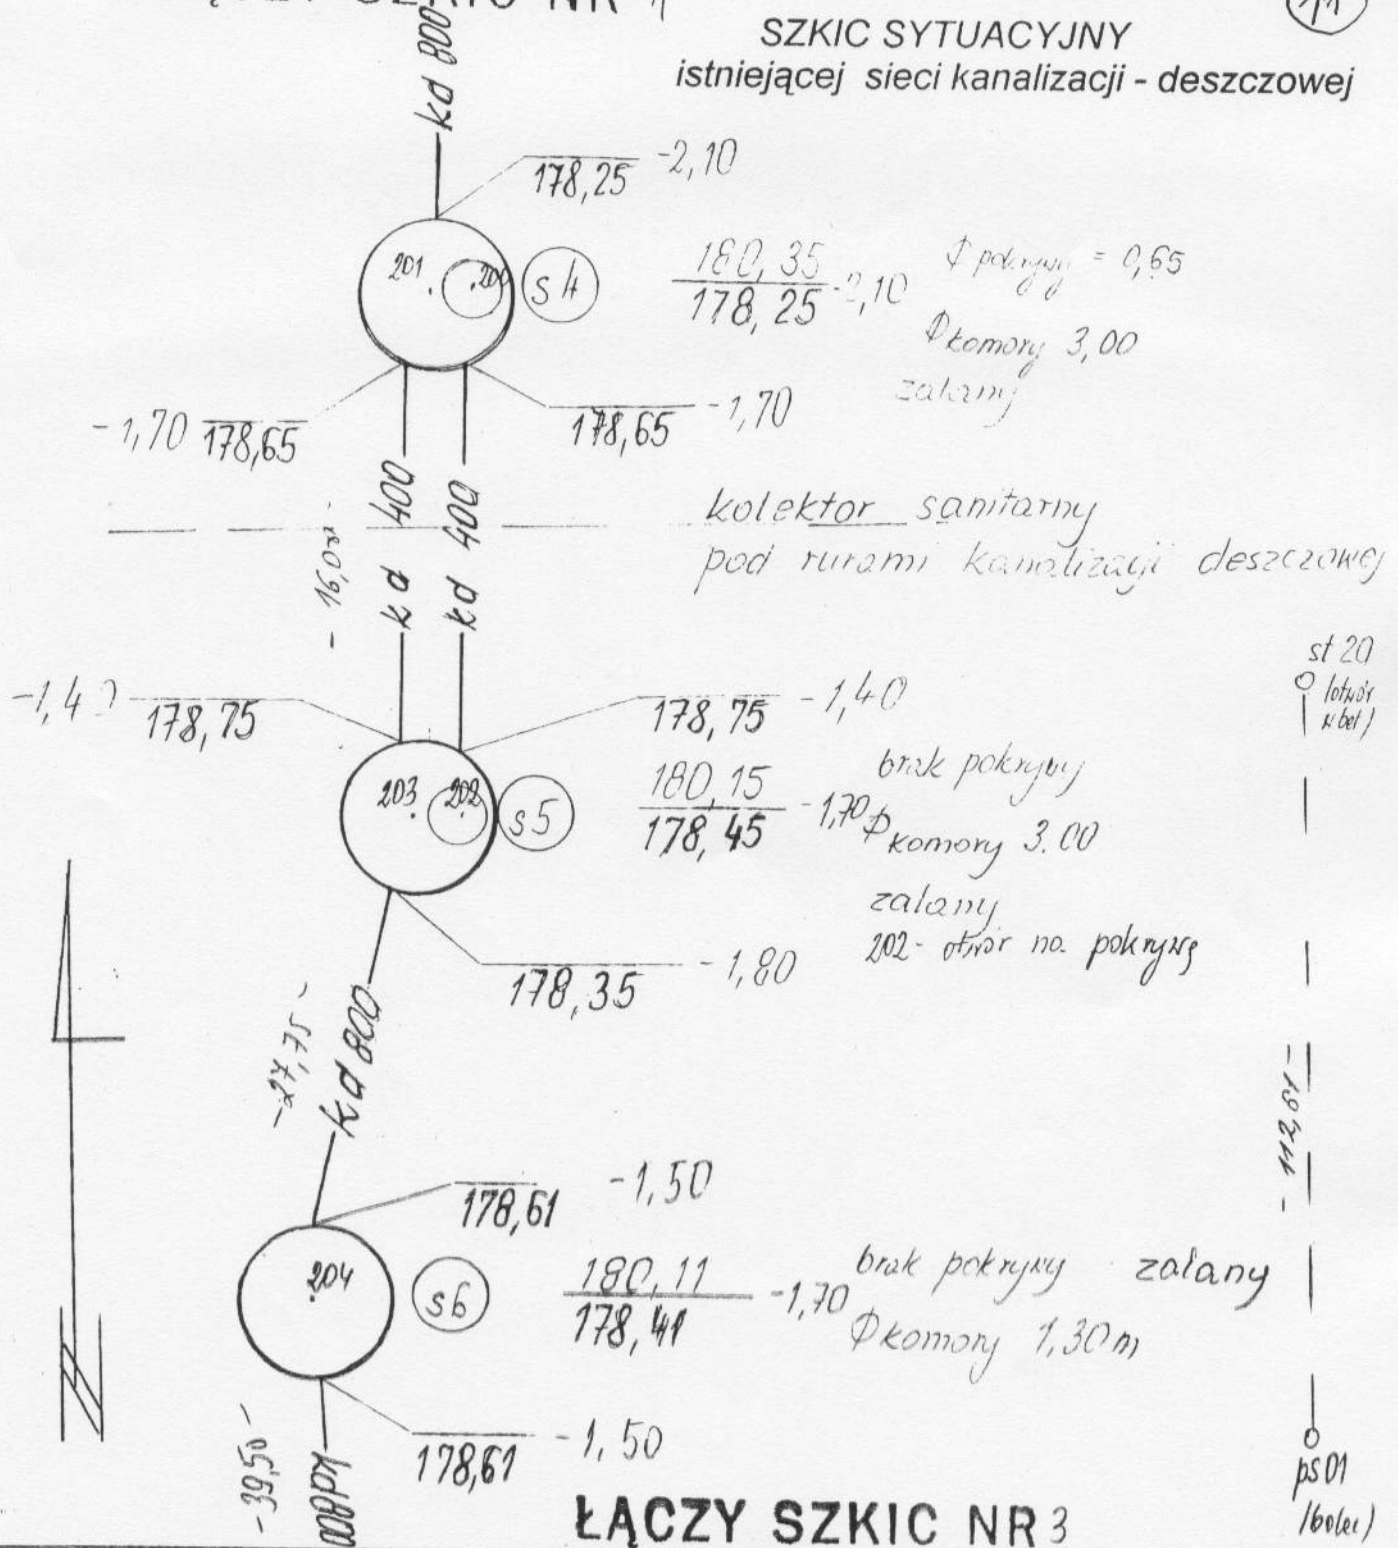 SZKIC NR 1
11
SZKIC SYTUACYJNY
istniejącej sieci kanalizacji - deszczowej
kd 800
178,25 -2,10
201 200 s4
180,35
178,25 -2,10
Φ pokrywy = 0,65
Φ komory 3,00
zalany
-1,70 178,65
178,65 -1,70
kd 400
kd 400
- 16,0
kolektor sanitarny
pod rurami kanalizacji deszczowej
st 20
/otwór
w bet/
-1,40 178,75
178,75 -1,40
203 202 s5
180,15
178,45 -1,70
brak pokrywy
Φ komory 3.00
zalany
202 - otwór na pokrywę
178,35 -1,80
-27,75-
kd 800
- 112,61 -
178,61 -1,50
204 s6
180,11
178,41 -1,70
brak pokrywy zalany
Φ komory 1,30m
178,61 -1,50
-39,50-
kd800
ps01
/bolec/
ŁĄCZY SZKIC NR 3